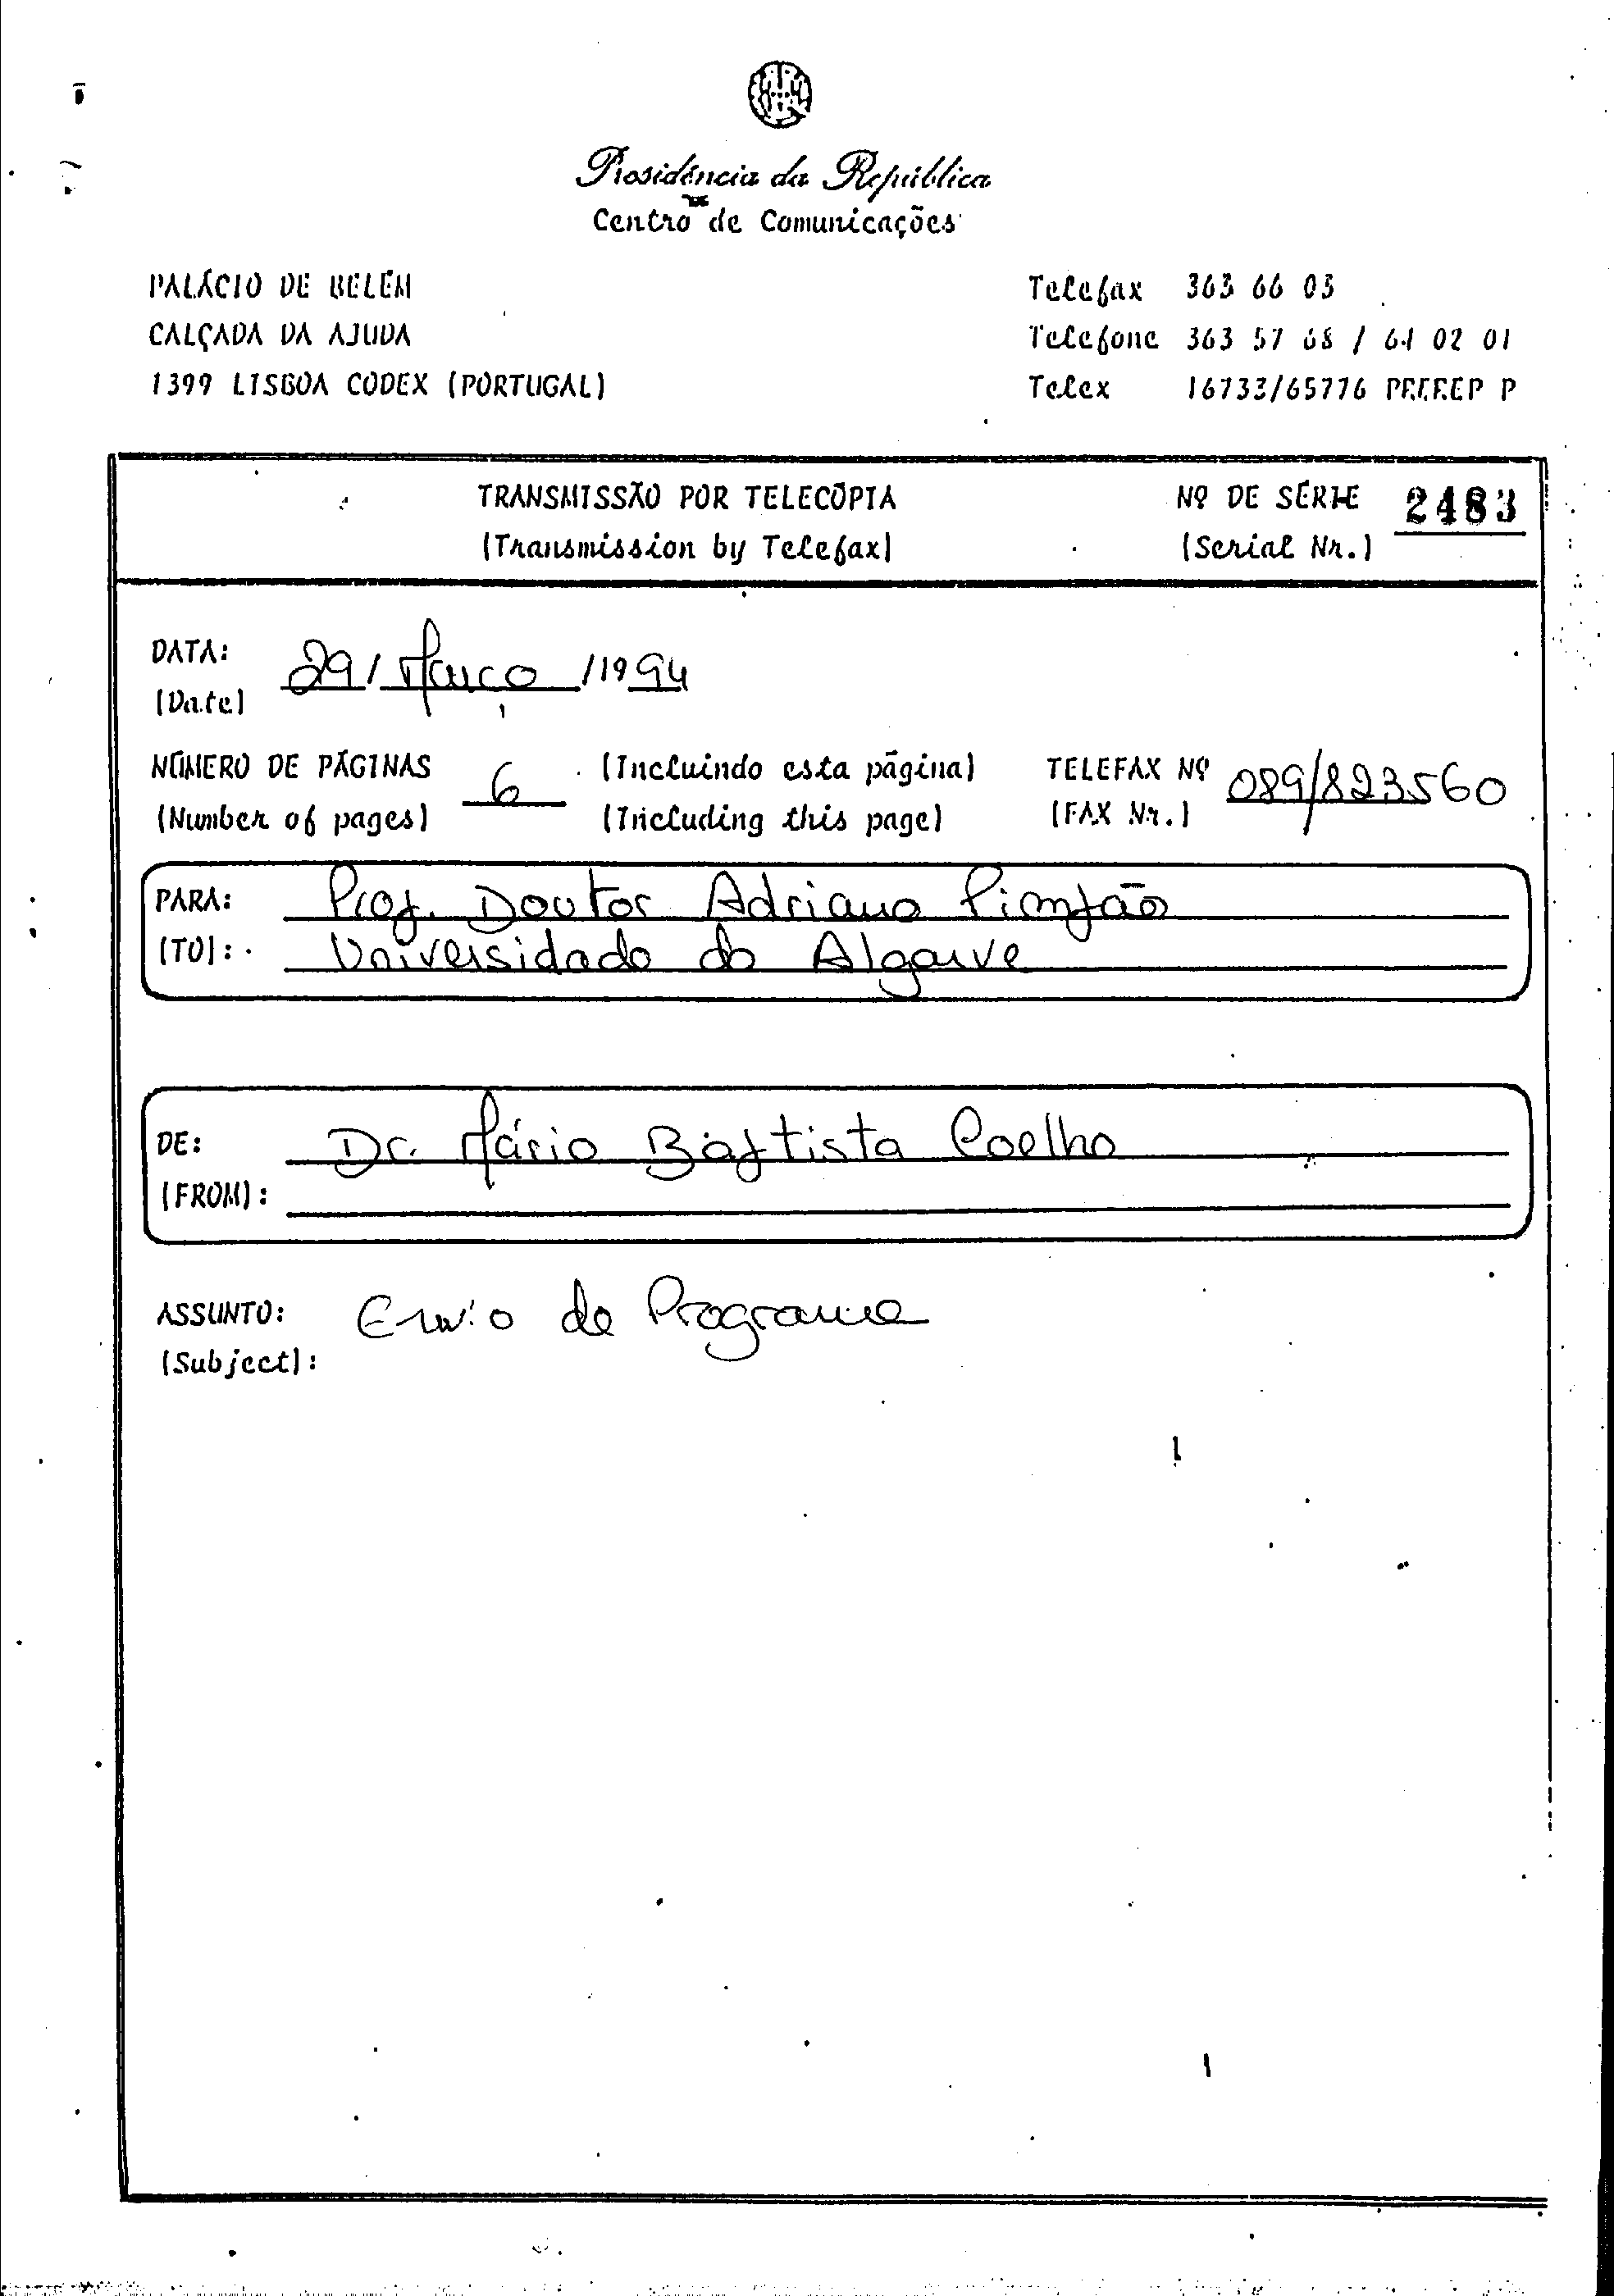 Presidência da República
Centro de Comunicações
PALÁCIO DE BELÉM
CALÇADA DA AJUDA
1399 LISBOA CODEX (PORTUGAL)
Telefax 363 66 03
Telefone 363 57 68 / 64 02 01
Telex 16733/65776 P
TRANSMISSÃO POR TELECÓPIA
(Transmission by Telefax)
Nº DE SÉRIE 2483
(Serial Nr.)
DATA: 29/ Março /1994
(Date)
NÚMERO DE PÁGINAS 6 (Incluindo esta página) TELEFAX Nº 089/823560
(Number of pages) (Including this page) (FAX Nr.)
PARA: Prof. Doutor Adriano Pimpão
(TO): Universidade do Algarve
DE: Dr. Mário Baptista Coelho
(FROM):
ASSUNTO: Envio de Programa
(Subject):